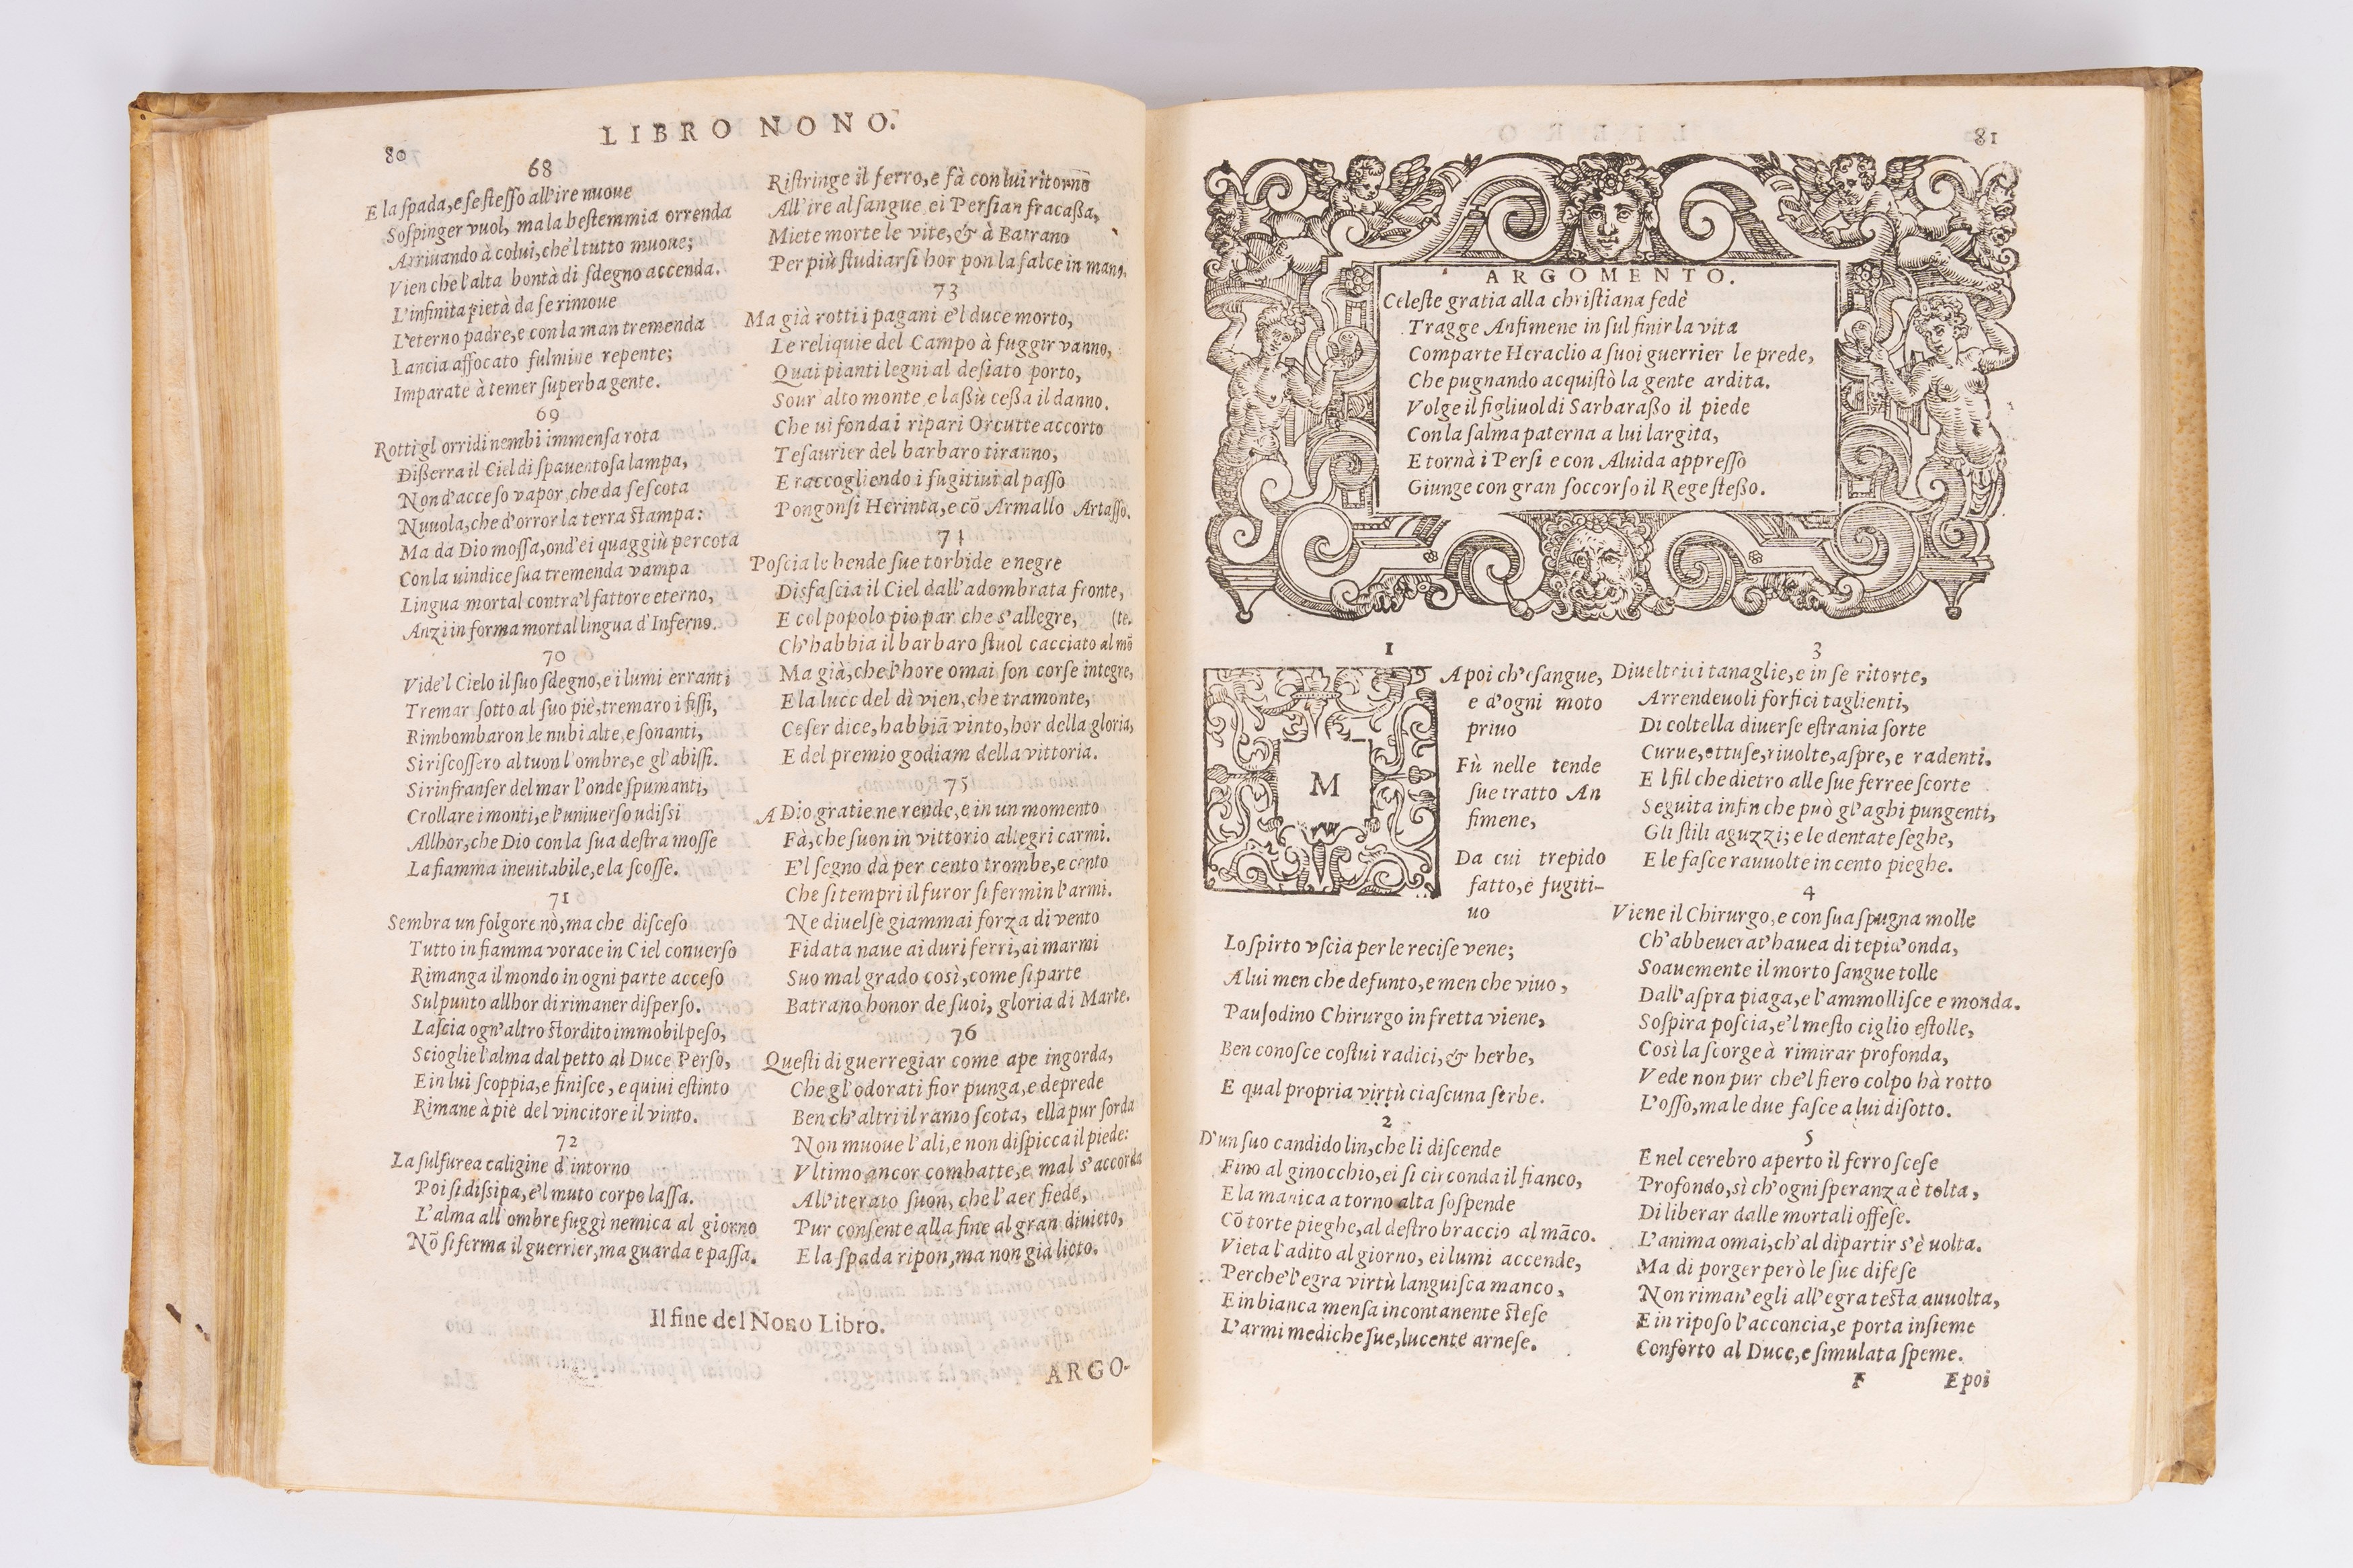 80
LIBRO NONO.
68
E la ſpada, e ſe ſteſſo all'ire nuoue
Soſpinger vuol, ma la beſtemmia orrenda
Arriuando à colui, che'l tutto muoue;
Vien che l'alta bontà di ſdegno accenda.
L'infinita pietà da ſe rimoue
L'eterno padre, e con la man tremenda
Lancia affocato fulmine repente;
Imparate à temer ſuperba gente.
69
Rotti gl'orridi nembi immenſa rota
Diſſerra il Ciel di ſpauentoſa lampa,
Non d'acceſo vapor, che da ſe ſcota
Nuuola, che d'orror la terra ſtampa:
Ma da Dio moſſa, ond'ei quaggiù percota
Con la uindice ſua tremenda vampa
Lingua mortal contra'l fattore eterno,
Anzi in forma mortal lingua d'Inferno.
70
Vide'l Cielo il ſuo ſdegno, e i lumi erranti
Tremar ſotto al ſuo piè, tremaro i fiſſi,
Rimbombaron le nubi alte, e ſonanti,
Si riſcoſſero al tuon l'ombre, e gl'abiſſi.
Si rinfranſer del mar l'onde ſpumanti,
Crollare i monti, e l'vniuerſo udiſſi
Allhor, che Dio con la ſua deſtra moſſe
La fiamma ineuitabile, e la ſcoſſe.
71
Sembra un folgore nò, ma che diſceſo
Tutto in fiamma vorace in Ciel conuerſo
Rimanga il mondo in ogni parte acceſo
Sul punto allhor di rimaner diſperſo.
Laſcia ogn'altro ſtordito immobil peſo,
Scioglie l'alma dal petto al Duce Perſo,
E in lui ſcoppia, e finiſce, e quiui eſtinto
Rimane à piè del vincitore il vinto.
72
La ſulfurea caligine d'intorno
Poi ſi diſsipa, e'l muto corpo laſſa.
L'alma all'ombre fuggì nemica al giorno
Nõ ſi ferma il guerrier, ma guarda e paſſa.
Riſtringe il ferro, e fà con lui ritorno
All'ire al ſangue, ei Perſian fracaßa,
Miete morte le vite, & à Batrano
Per più ſtudiarſi hor pon la falce in mano.
73
Ma già rotti i pagani e'l duce morto,
Le reliquie del Campo à fuggir vanno,
Quai pianti legni al deſiato porto,
Sour'alto monte, e laßù ceßa il danno.
Che ui fonda i ripari Orcutte accorto
Teſaurier del barbaro tiranno,
E raccogliendo i fugitiui al paſſo
Pongonſi Herinta, e cõ Armallo Artaſſo.
71
Poſcia le bende ſue torbide e negre
Disfaſcia il Ciel dall'adombrata fronte,
E col popolo pio par che s'allegre, (te.
Ch'habbia il barbaro ſtuol cacciato al mõ
Ma già, che l'hore omai ſon corſe integre,
E la luce del dì vien, che tramonte,
Ceſer dice, habbiã vinto, hor della gloria,
E del premio godiam della vittoria.
75
A Dio gratie ne rende, e in un momento
Fà, che ſuon in vittorio allegri carmi.
E'l ſegno dà per cento trombe, e cento
Che ſi tempri il furor ſi fermin l'armi.
Ne diuelſe giammai forza di vento
Fidata naue ai duri ferri, ai marmi
Suo mal grado così, come ſi parte
Batrano honor de ſuoi, gloria di Marte.
76
Queſti di guerregiar come ape ingorda,
Che gl'odorati fior punga, e deprede
Ben ch'altri il ramo ſcota, ella pur ſorda
Non muoue l'ali, e non diſpicca il piede:
Vltimo ancor combatte, e mal s'accorda
All'iterato ſuon, che l'aer fiede,
Pur conſente alla fine al gran diuieto,
E la ſpada ripon, ma non già lieto.
Il fine del Nono Libro.
ARGO-
81
ARGOMENTO.
Celeſte gratia alla chriſtiana fede
Tragge Anfimene in ſul finir la vita
Comparte Heraclio a ſuoi guerrier le prede,
Che pugnando acquiſtò la gente ardita.
Volge il figliuol di Sarbaraßo il piede
Con la ſalma paterna a lui largita,
E tornà i Perſi e con Aluida appreſſo
Giunge con gran ſoccorſo il Rege ſteßo.
1
M
A poi ch'eſangue,
e d'ogni moto
priuo
Fù nelle tende
ſue tratto An
fimene,
Da cui trepido
fatto, e fugiti-
uo
Lo ſpirto vſcia per le reciſe vene;
A lui men che defunto, e men che viuo,
Pauſodino Chirurgo in fretta viene,
Ben conoſce coſtui radici, & herbe,
E qual propria virtù ciaſcuna ſerbe.
2
D'un ſuo candido lin, che li diſcende
Fino al ginocchio, ei ſi circonda il fianco,
E la manica a torno alta ſoſpende
Cõ torte pieghe, al deſtro braccio al mãco.
Vieta l'adito al giorno, ei lumi accende,
Perche l'egra virtù languiſca manco,
E in bianca menſa incontanente ſteſe
L'armi mediche ſue, lucente arneſe.
3
Diueltrici tanaglie, e in ſe ritorte,
Arrendeuoli forfici taglienti,
Di coltella diuerſe eſtrania ſorte
Curue, ottuſe, riuolte, aſpre, e radenti.
E l fil che dietro alle ſue ferree ſcorte
Seguita infin che può gl'aghi pungenti,
Gli ſtili aguzzi; e le dentate ſeghe,
E le faſce rauuolte in cento pieghe.
4
Viene il Chirurgo, e con ſua ſpugna molle
Ch'abbeuerat'hauea di tepid'onda,
Soauemente il morto ſangue tolle
Dall'aſpra piaga, e l'ammolliſce e monda.
Soſpira poſcia, e'l meſto ciglio eſtolle,
Così la ſcorge à rimirar profonda,
Vede non pur che'l fiero colpo hà rotto
L'oſſo, ma le due faſce a lui diſotto.
5
E nel cerebro aperto il ferro ſceſe
Profondo, sì ch'ogni ſperanza è tolta,
Di liberar dalle mortali offeſe.
L'anima omai, ch'al dipartir s'è uolta.
Ma di porger però le ſue difeſe
Non riman'egli all'egra teſta auuolta,
E in ripoſo l'acconcia, e porta inſieme
Conforto al Duce, e ſimulata ſpeme.
F
E poi